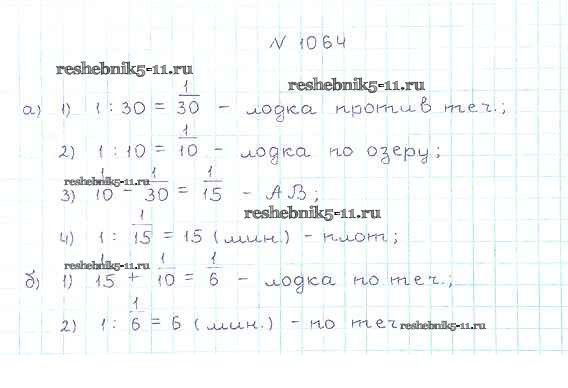 N 1064
reshebnik5-11.ru
reshebnik5-11.ru
а) 1) 1 : 30 = 1/30 - лодка против теч.;
2) 1 : 10 = 1/10 - лодка по озеру;
reshebnik5-11.ru
3) 1/10 - 1/30 = 1/15 - АВ;
reshebnik5-11.ru
4) 1 : 1/15 = 15 (мин.) - плот;
reshebnik5-11.ru
б) 1) 1/15 + 1/10 = 1/6 - лодка по теч.;
2) 1 : 1/6 = 6 (мин.) - по теч
reshebnik5-11.ru